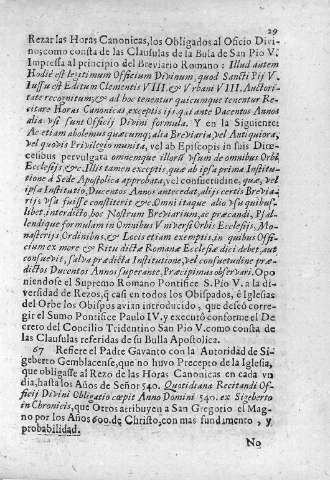 29
Rezar las Horas Canonicas, los Obligados al Oficio Divi-
no; como consta de las Clausulas de la Bula de San Pio V.
Impressa al principio del Breviario Romano: Illud autem
Hodiè est legitimum Officium Divinum, quod Sancti Pij V.
Iussu est Editum Clementis VIII. & Vrbani VIII. Auctori-
tate recognitum; & ad hoc tenentur quicumque tenentur Re-
citare Horas Canonicas, exceptis ijs qui ante Ducentos Annos
alia vsi sunt Officij Divini formula. Y en la Siguiente
Ac etiam abolemus quæcumq; alia Breviaria, vel Antiquiora,
vel quovis Privilegio munita, vel ab Episcopis in suis Diœ-
celibus pervulgata omnemque illorū vsum de omnibus Orbis
Ecclesijs, &c. Illis tamen exceptis, quæ ab ipsa prima Institu-
tione à Sede Apostolica approbata, vel consuetudine, quæ, vel
ipsa Institutio, Ducentos Annos antecedat, alijs certis Brevia-
rijs vsa fuisse constiterit &c Omni itaque alio vsu quibus-
libet, interdicto hoc Nostrum Breviarium, ac præcandi, Psal-
lendique formulam in Omnibus Vniversi Orbis Ecclesijs, Mo-
nasterijs Ordinibus, & Locis etiam exemptis, in quibus Offi-
cium ex more & Ritu dictæ Romanæ Ecclesiæ dici debet, aut
consuevit, salva prædicta Institutione, vel consuetudine præ-
dictos Ducentos Annos superante, Præcipimus observari. Opo
niendose el Supremo Romano Pontifice S. Pio V. a la di-
versidad de Rezos, q̃ casi en todos los Obispados, é Iglesias
del Orbe los Obispos avian introducido, que deseó corre-
gir el Sumo Pontifice Paulo IV. y executó conforme el De
creto del Concilio Tridentino San Pio V. como consta de
las Clausulas referidas de su Bulla Apostolica.
67 Refiere el Padre Gavanto con la Autoridad de Si-
geberto Gemblacense, que no huvo Precepto de la Iglesia,
que obligasse al Rezo de las Horas Canonicas en cada vn
dia, hasta los Años de Señor 540. Quotidiana Recitandi Of-
ficij Divini Obligatio cœpit Anno Domini 540. ex Sigeberto
in Chronicis, que Otros atribuyen a San Gregorio el Mag-
no por los Años 600. de Christo, con mas fundamento, y
probabilidad.
No